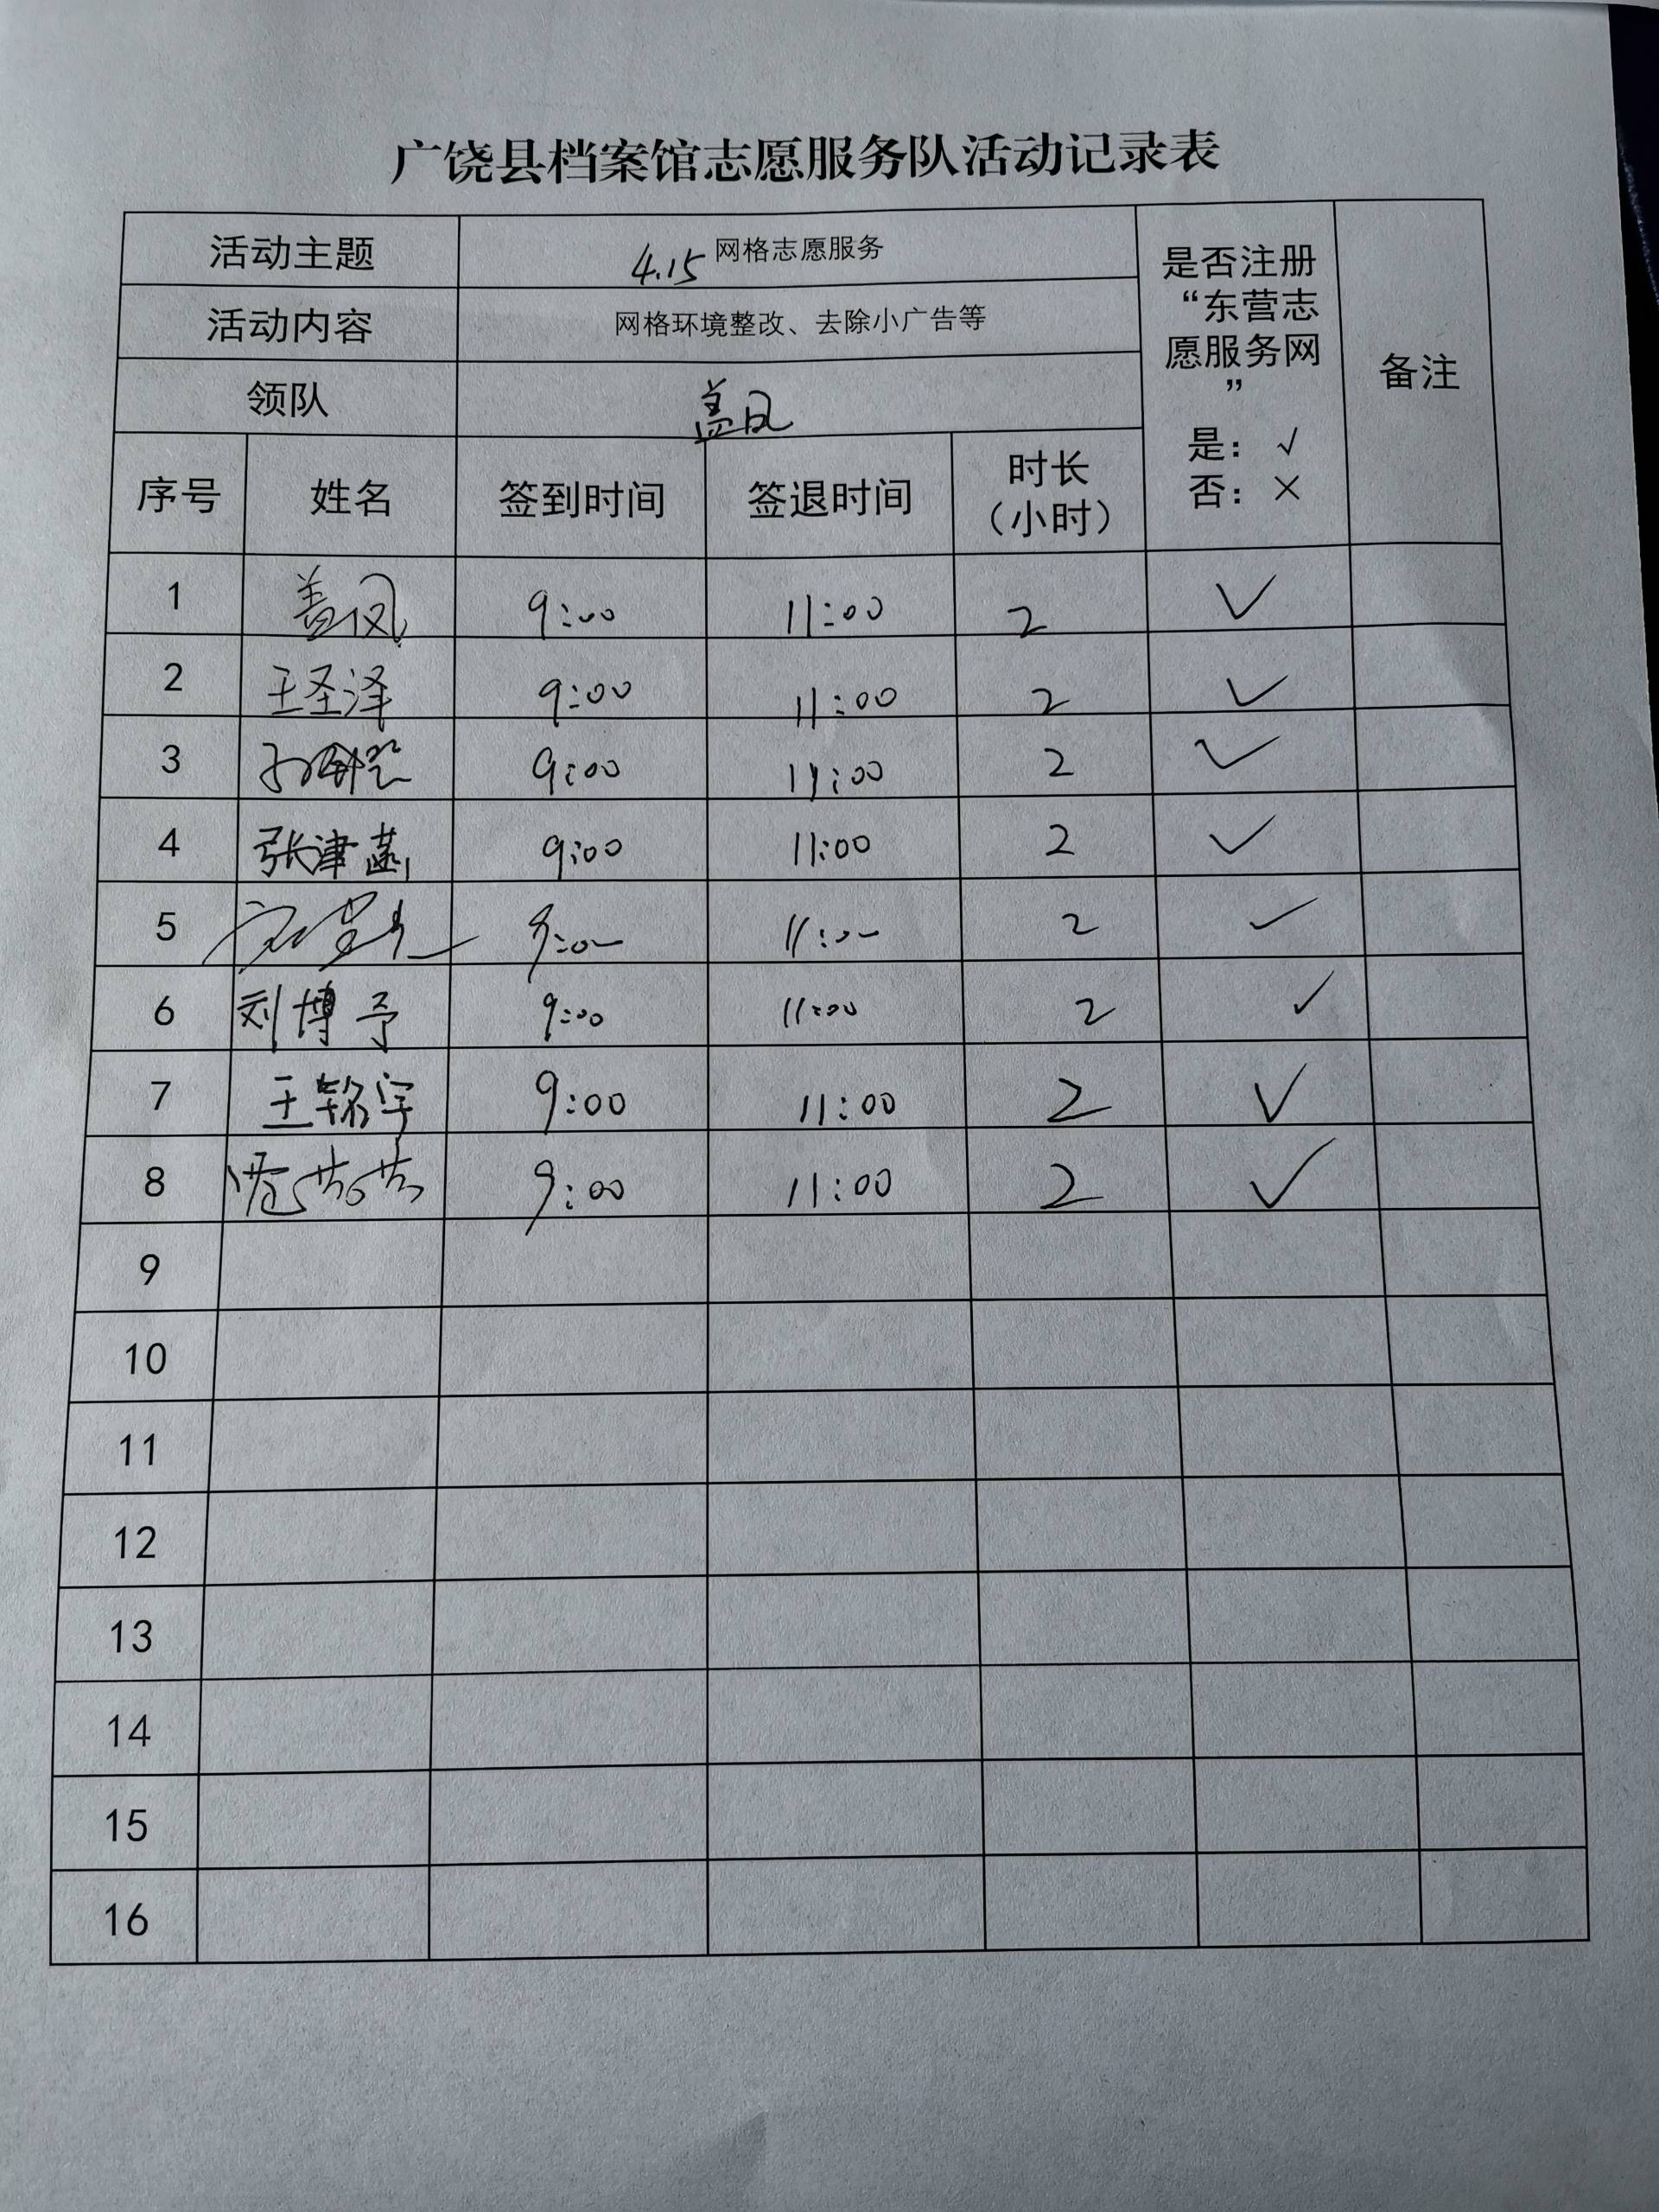 广饶县档案馆志愿服务队活动记录表
活动主题 4.15 网格志愿服务
活动内容 网格环境整改、去除小广告等
领队 盖凤
是否注册
“东营志
愿服务网
”
是：√
否：×
备注
序号 姓名 签到时间 签退时间 时长
（小时）
1 盖凤 9:00 11:00 2 √
2 王圣泽 9:00 11:00 2 √
3 9:00 11:00 2 √
4 张津 9:00 11:00 2 √
5 9:00 11:00 2 √
6 刘博予 9:00 11:00 2 √
7 王铭宇 9:00 11:00 2 √
8 9:00 11:00 2 √
9
10
11
12
13
14
15
16